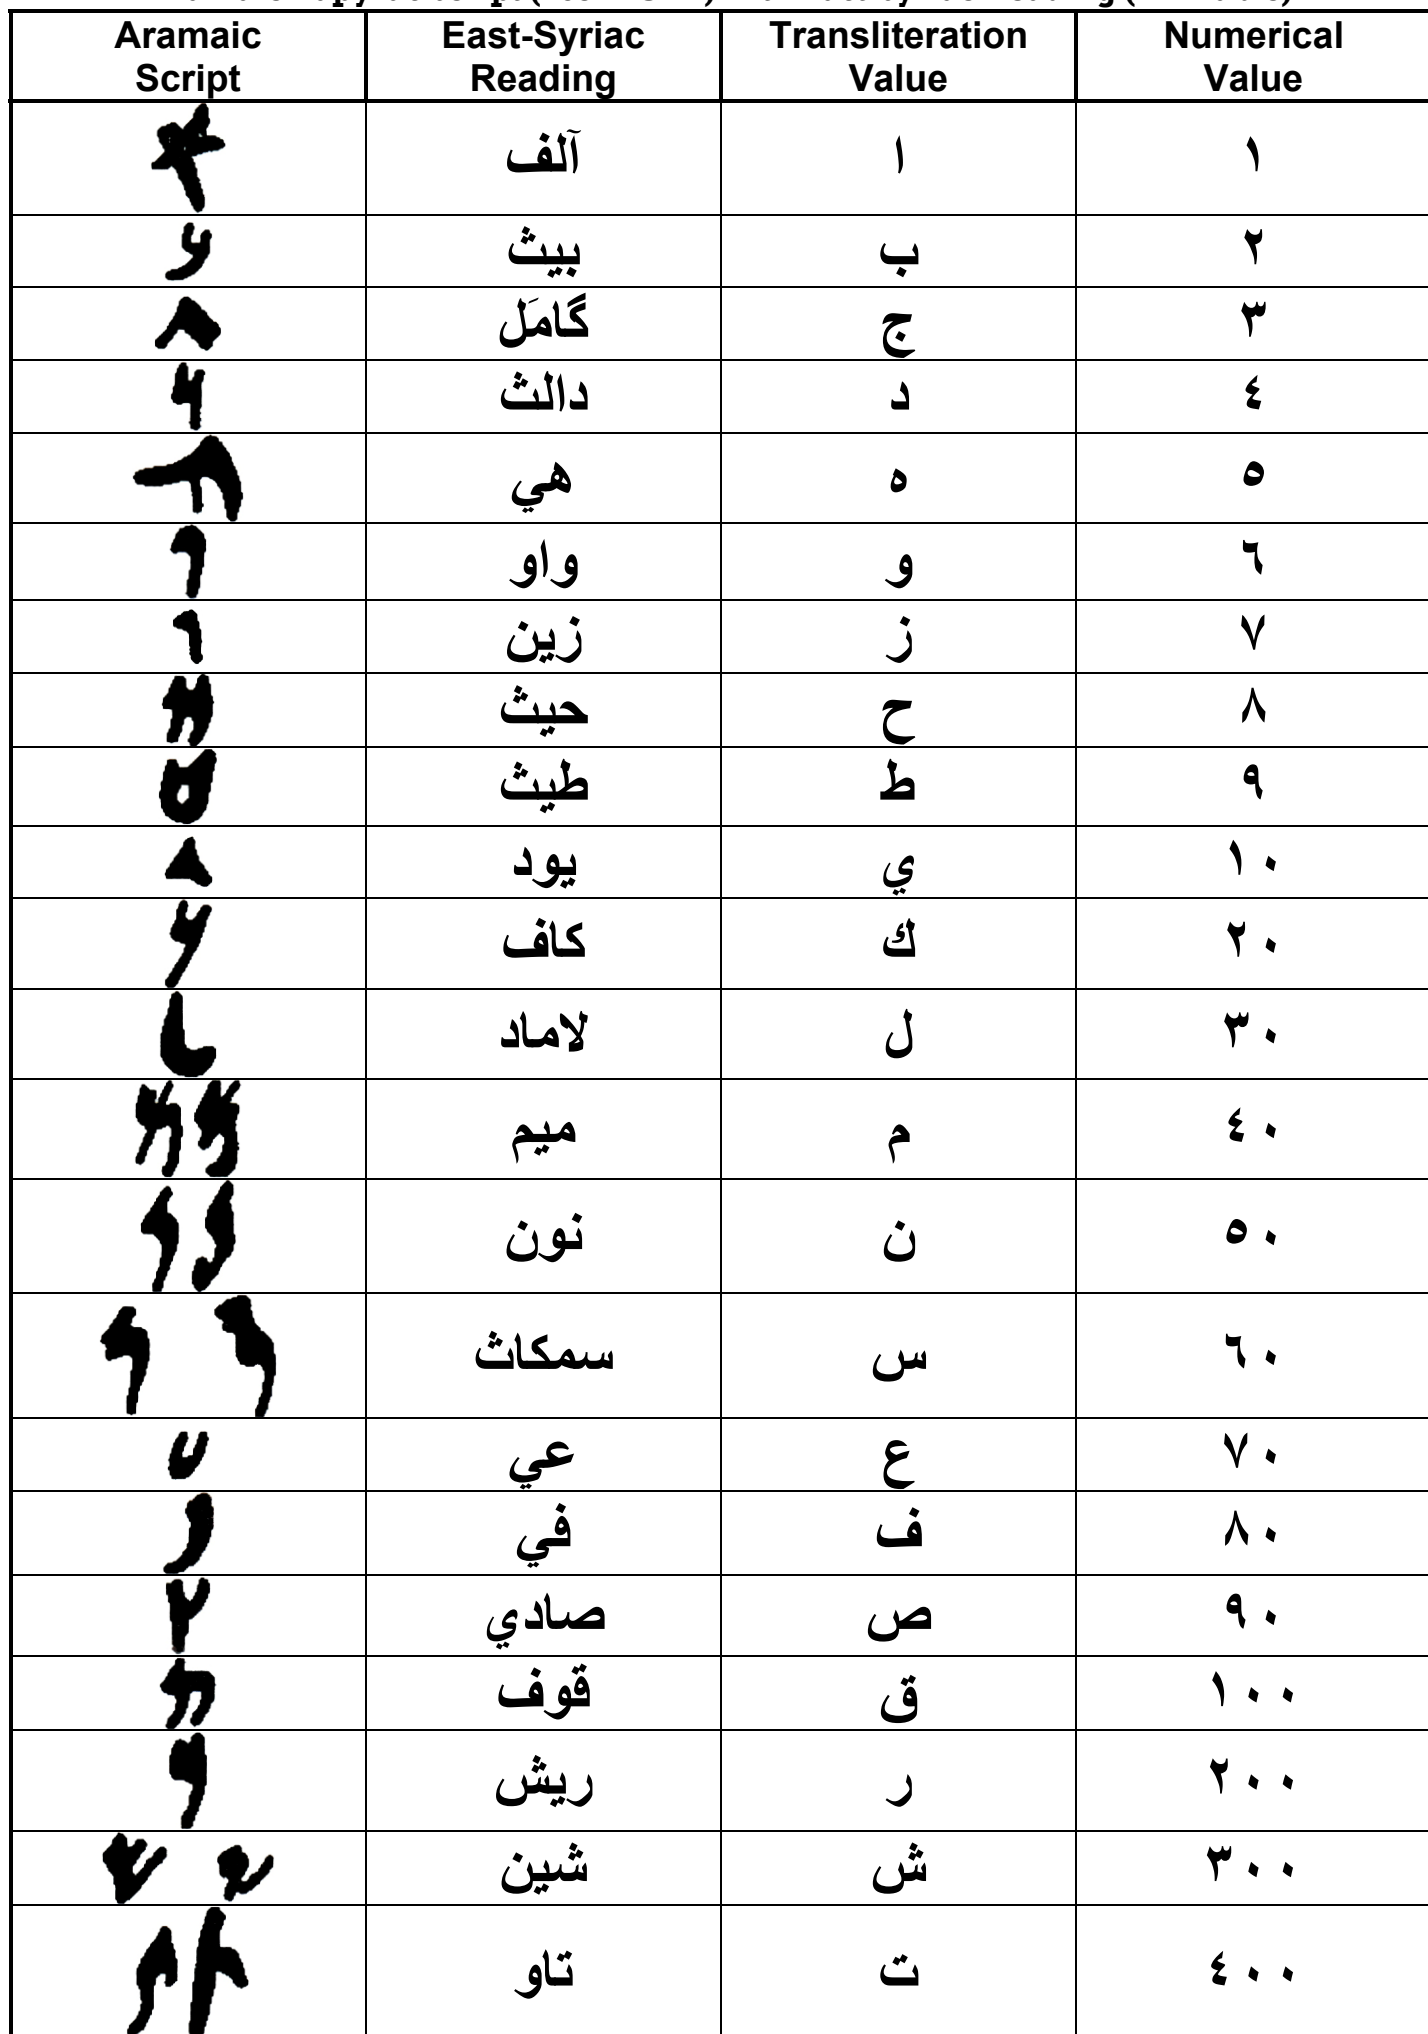 Aramaic Script East-Syriac Reading Transliteration Value Numerical Value
آلف ا ١
بيث ب ٢
گامَل ج ٣
دالث د ٤
هي ه ٥
واو و ٦
زين ز ٧
حيث ح ٨
طيث ط ٩
يود ي ١٠
كاف ك ٢٠
لاماد ل ٣٠
ميم م ٤٠
نون ن ٥٠
سمكاث س ٦٠
عي ع ٧٠
في ف ٨٠
صادي ص ٩٠
قوف ق ١٠٠
ريش ر ٢٠٠
شين ش ٣٠٠
تاو ت ٤٠٠